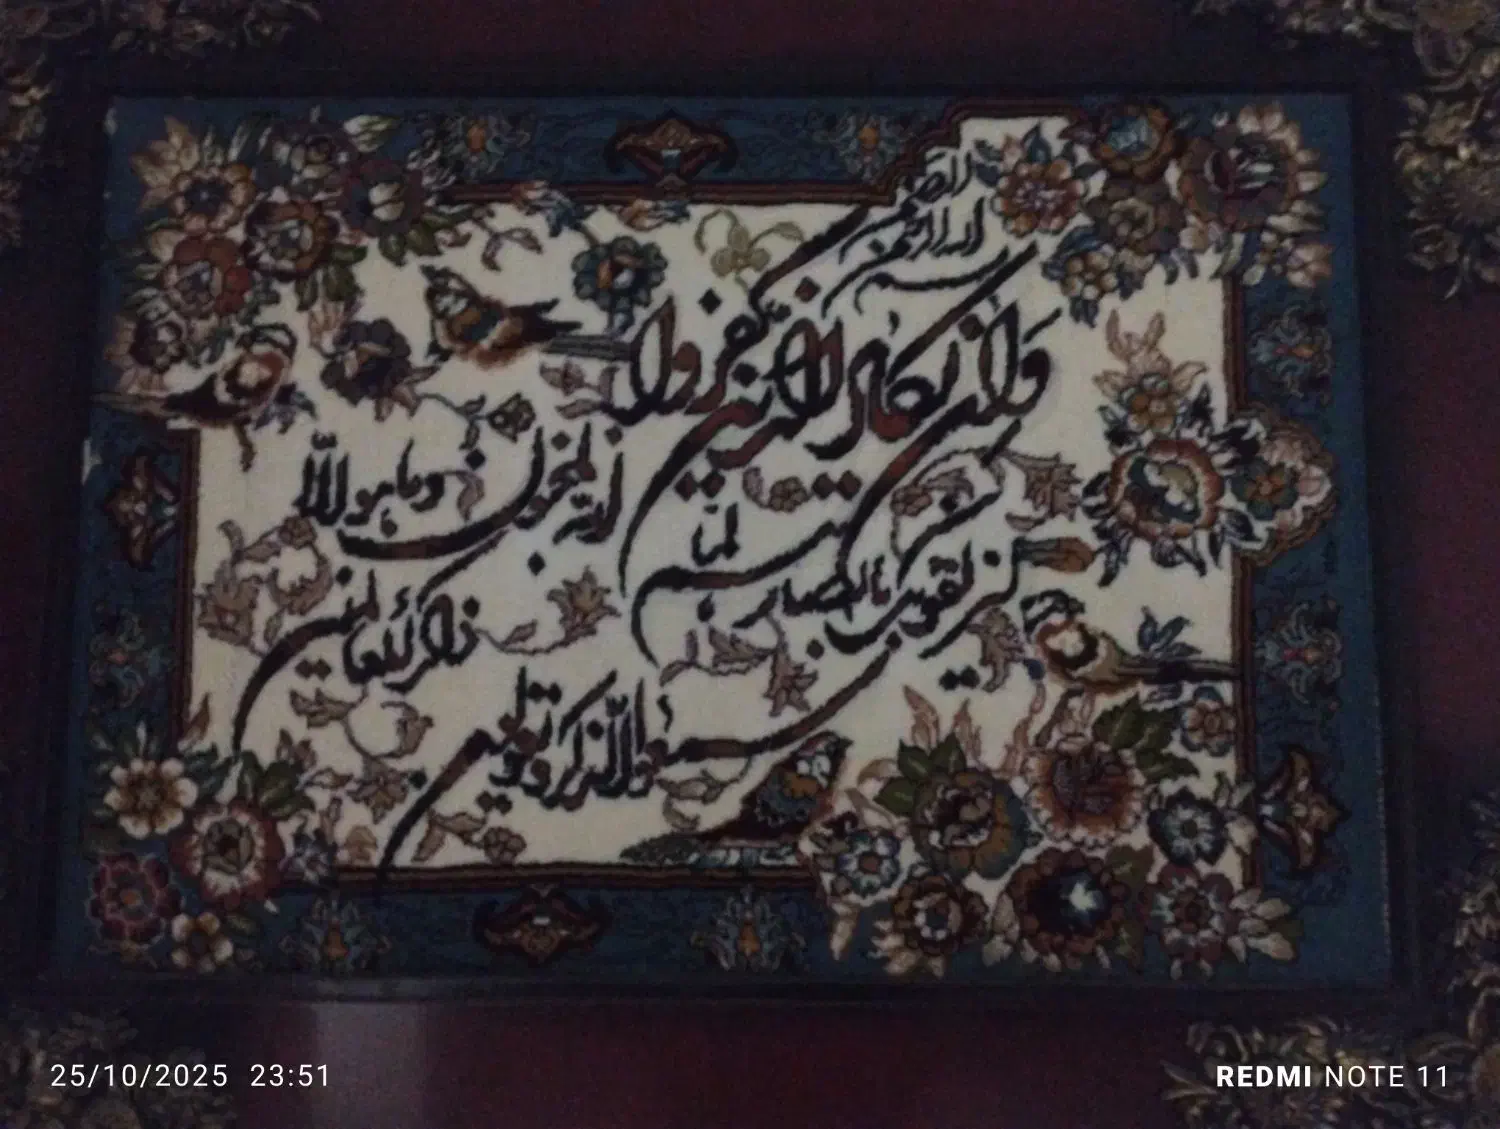 بسم الله الرحمن الرحیم
وان یکاد الذین کفروا
لیزلقونک بابصارهم لما
سمعوا الذکر ویقولون
انه لمجنون وما هو الا
ذکر للعالمین
25/10/2025 23:51
REDMI NOTE 11